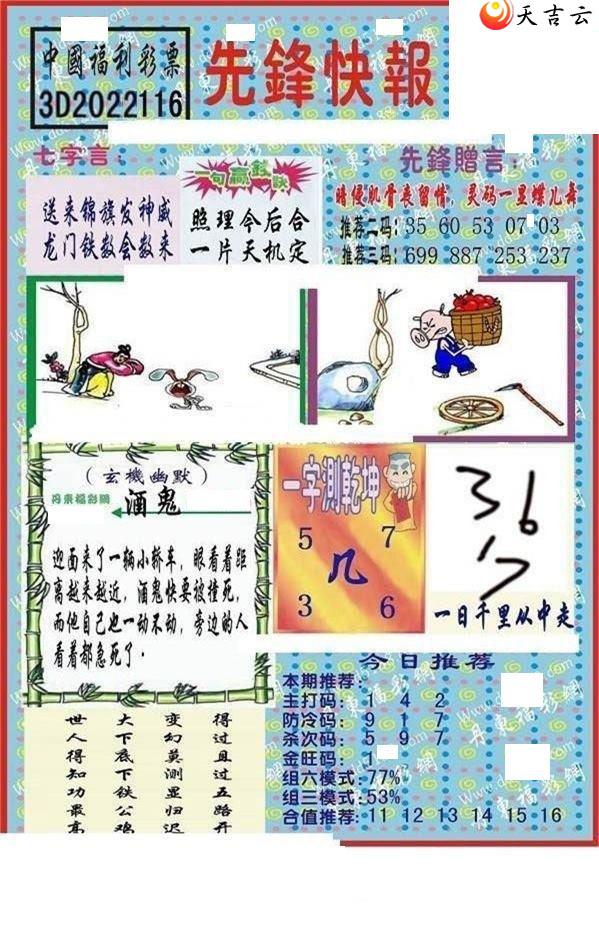 天吉云
中國福利彩票
3D2022116
先鋒快報
七字言：
送来锦旗发神威
龙门铁数会数来
一句赢錢訣
照理今后合
一片天机定
先鋒贈言：
暗侵肌骨丧留情，灵码一显蝶儿舞
推荐二码：35 60 53 07 03
推荐三码：699 887 253 237
（玄機幽默）
丹東福彩網
酒鬼
迎面来了一辆小轿车，眼看着距
离越来越近，酒鬼快要被撞死，
而他自己也一动不动，旁边的人
看着都急死了。
一字测乾坤
5 7
几
3 6
36
17
一日千里从中走
今日推荐
本期推荐：
主打码：1 4 2
防冷码：9 1 7
杀次码：5 9 7
金旺码：1
组六模式：77%
组三模式：53%
合值推荐：11 12 13 14 15 16
世人得知功最高
大下底下铁公鸡
变幻莫测显归迟
得过且过五路开
丹東福彩網